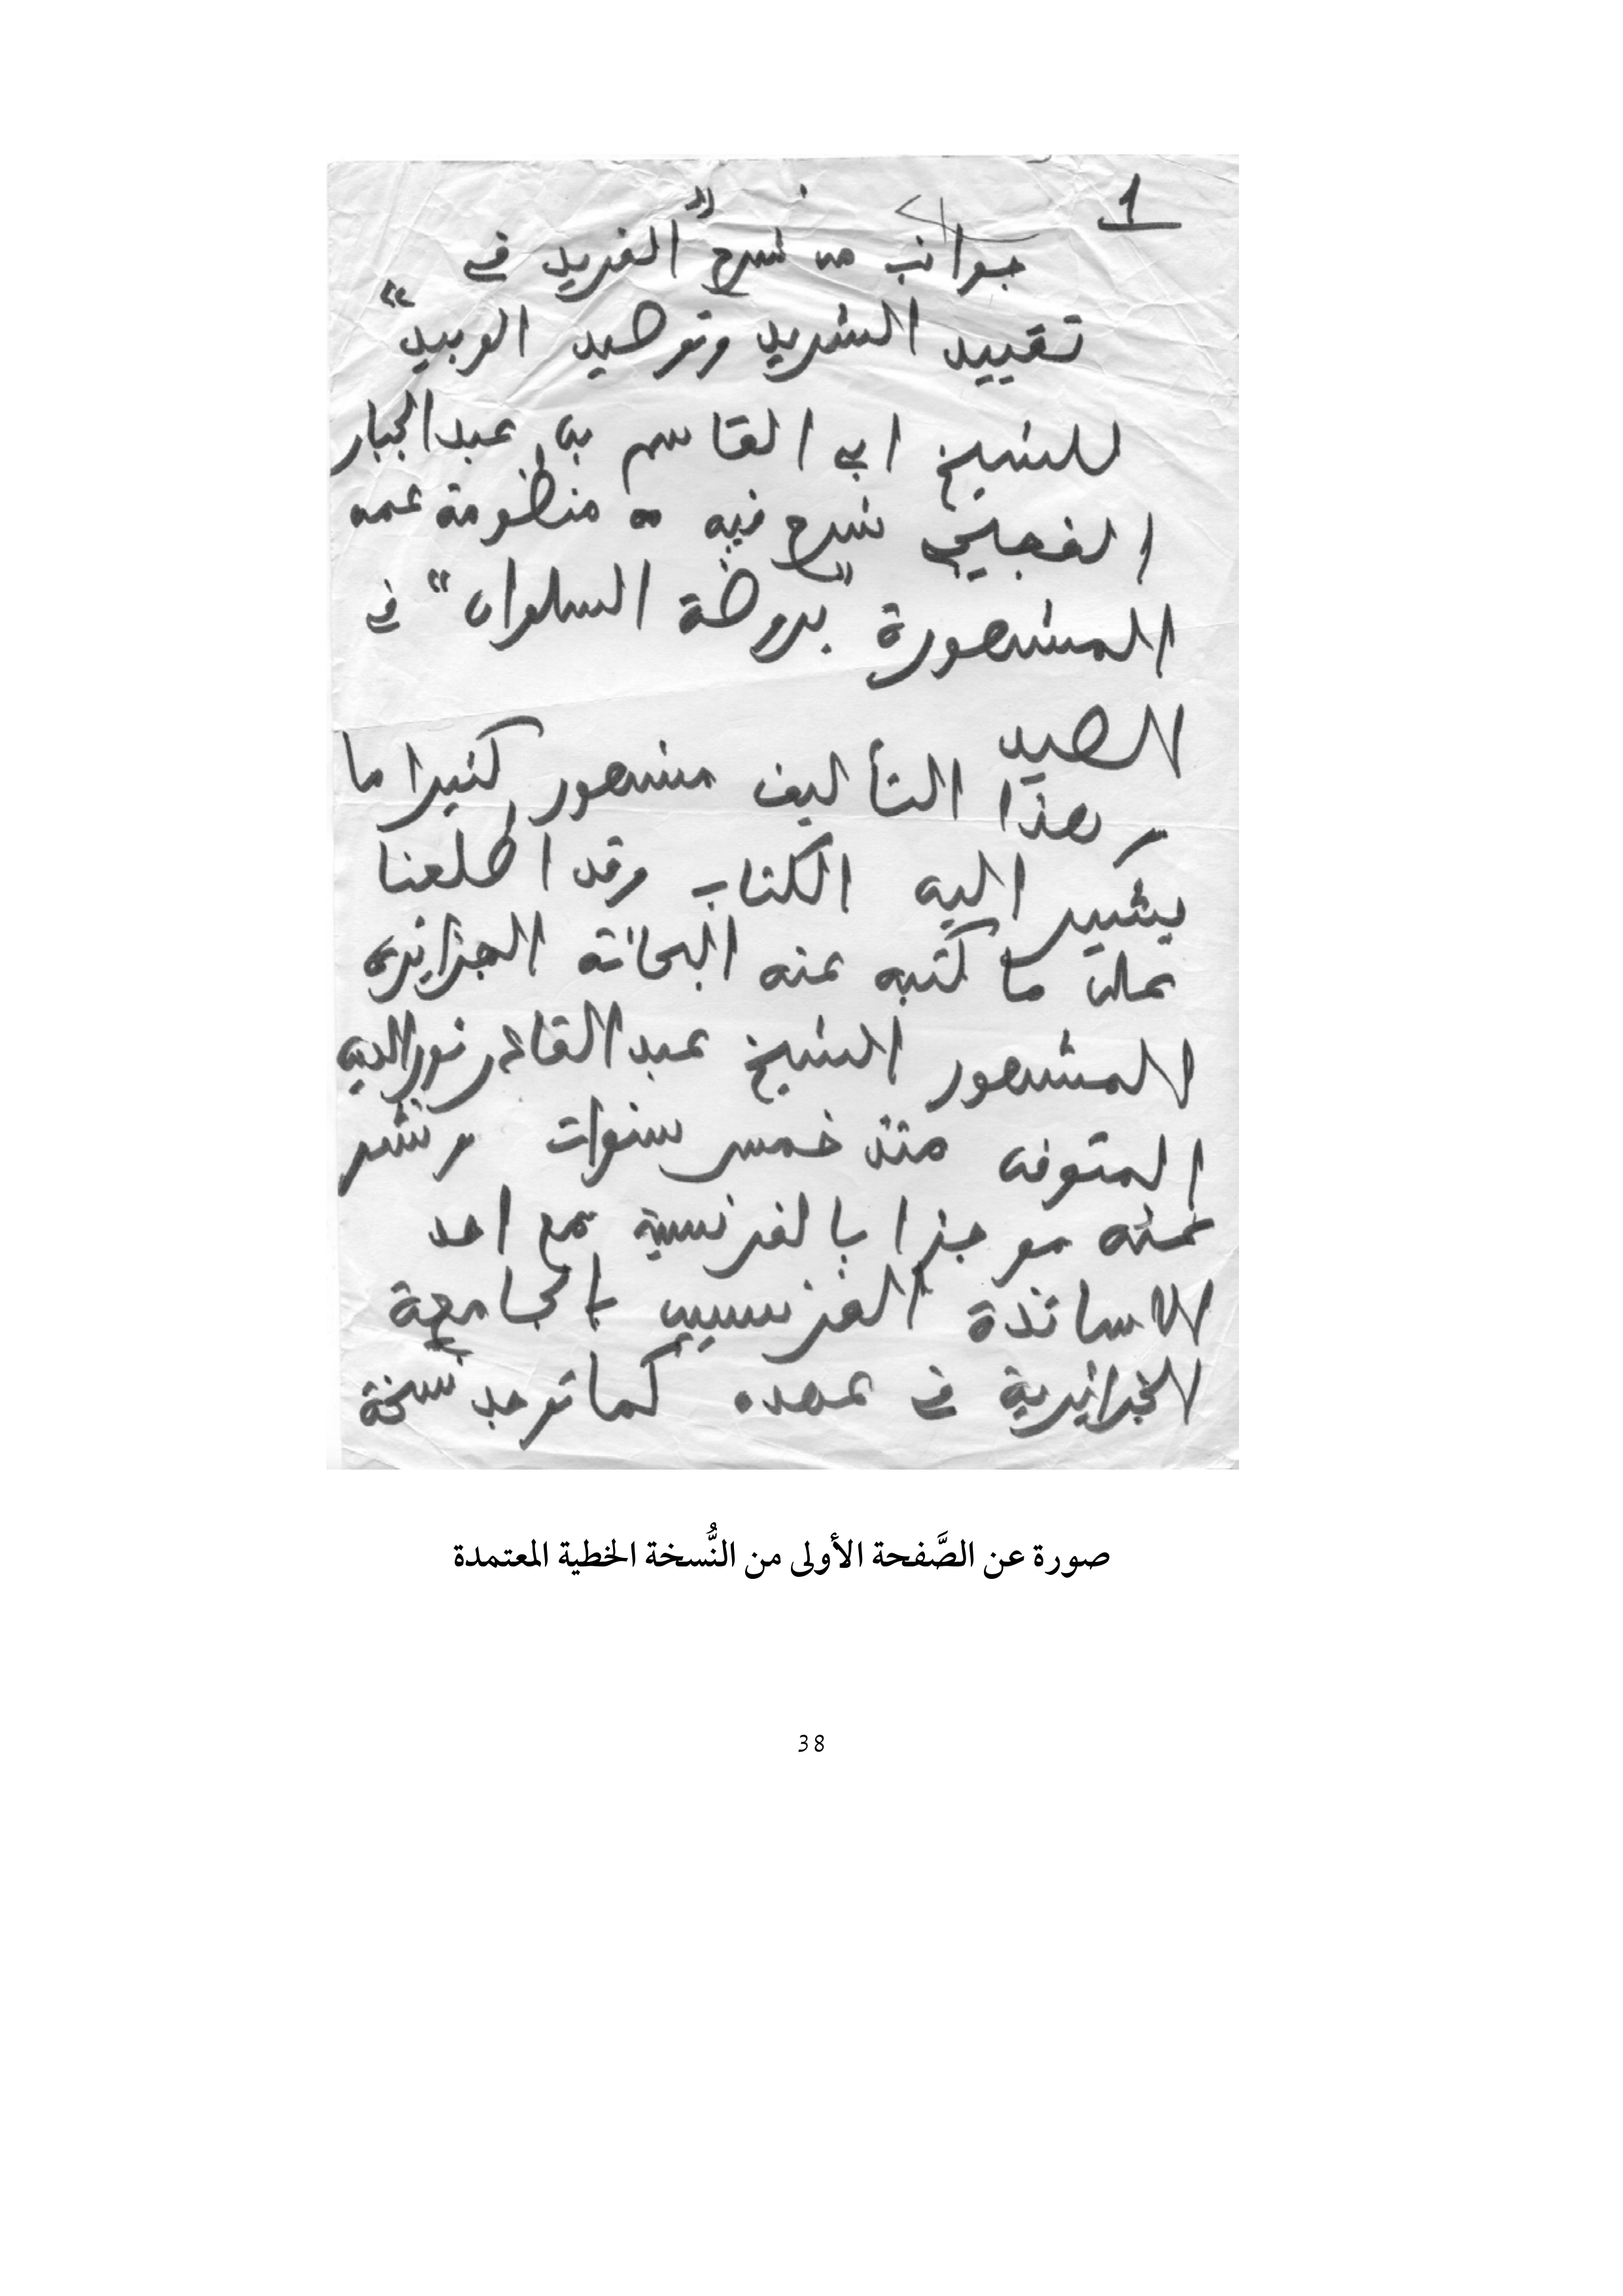 1
جوانب من شرح "الفريد في
تقييد الشريد وتوصيد الوبيد"
للشيخ ابي القاسم بن عبد الجبار
الفجيجي شرح فيه منظومة عمه
المشهورة "بروضة السلوان" في
الصيد
وهذا التأليف مشهور كثيرا ما
يشير اليه الكتاب وقد اطلعنا
على ما كتبه عنه البحاثة الجزائري
المشهور الشيخ عبد القادر نور الدين
المتوفى منذ خمس سنوات ونشر
عنه موجزا بالفرنسية مع احد
الاساتذة الفرنسيين بالجامعة
الجزائرية في عهده كما توجد نسخة
صورة عن الصَّفحة الأولى من النُّسخة الخطية المعتمدة
38